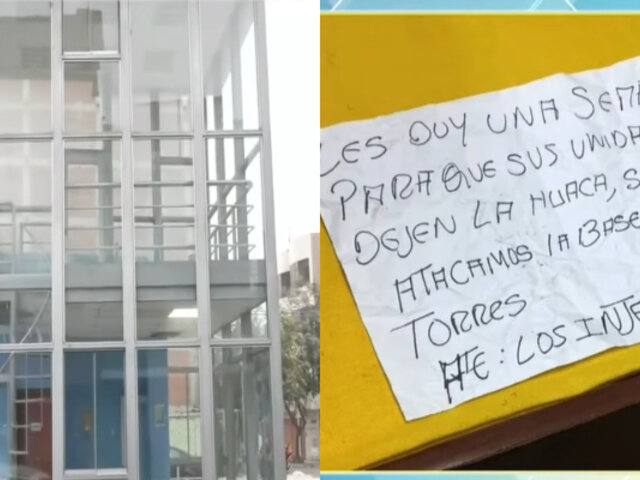 LES DOY UNA SEMA
PARA QUE SUS UNIDA
DEJEN LA HUACA, S
ATACAMOS LA BASE
TORRES
ATE: LOS INJE